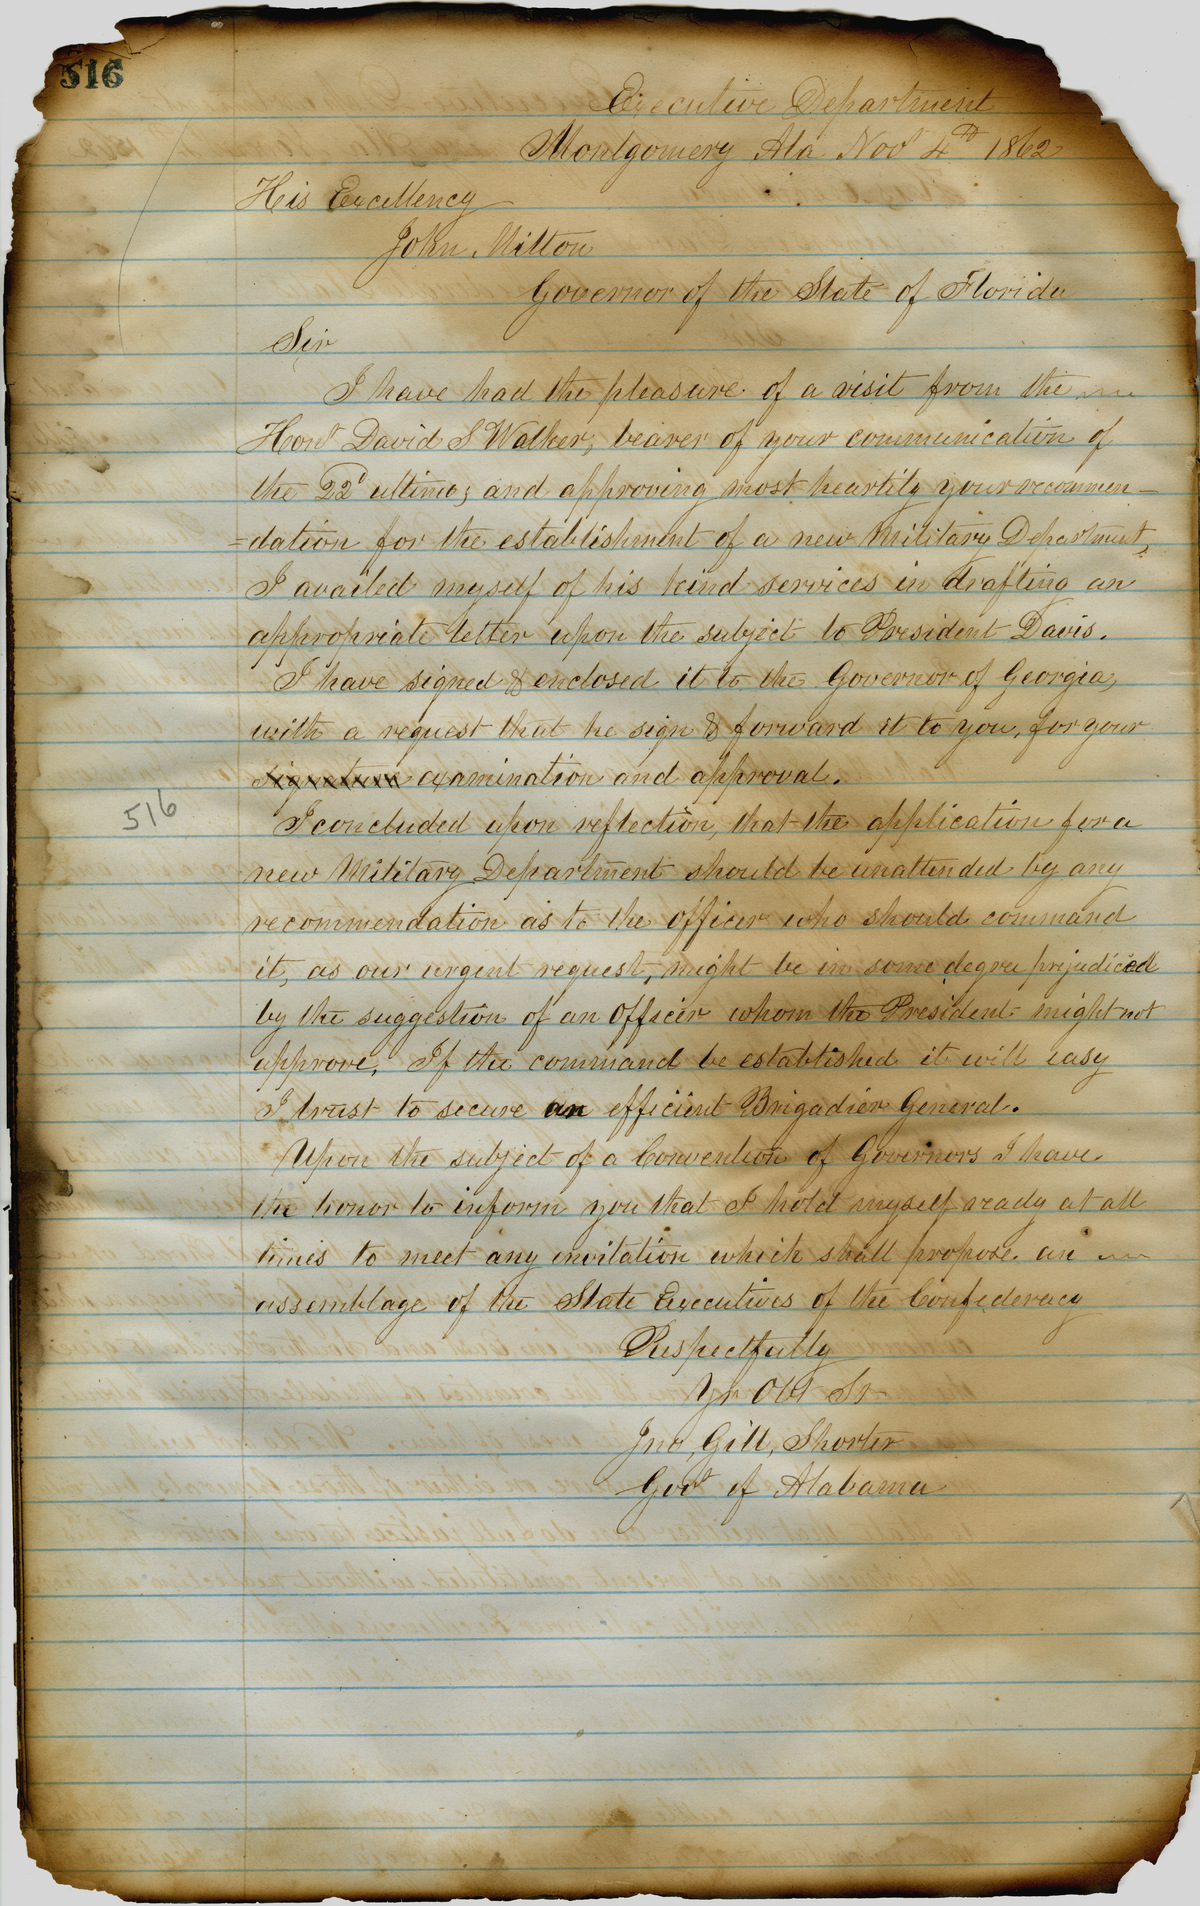 516
Executive Department
Montgomery Ala Nov 4th 1862
His Excellency
John Milton
Governor of the State of Florida
Sir
I have had the pleasure of a visit from the
Honl David S Walker, bearer of your communication of
the 22d ultimo; and approving most heartily your recommen-
-dation for the establishment of a new Military Department,
I availed myself of his kind services in drafting an
appropriate letter upon the subject to President Davis.
I have signed & enclosed it to the Governor of Georgia,
with a request that he sign & forward it to you, for your
signature examination and approval.
516
I concluded upon reflection, that the application for a
new Military Department should be unattended by any
recommendation as to the officer who should command
it, as our urgent request, might be in some degree prejudiced
by the suggestion of an officer whom the President might not
approve. If the command be established it will easy
I trust to secure an efficient Brigadier General.
Upon the subject of a Convention of Governors I have
the honor to inform you that I hold myself ready at all
times to meet any invitation which shall propose an
assemblage of the State Executives of the Confederacy
Respectfully
Yr Obt St
Jno, Gill, Shorter
Govr of Alabama